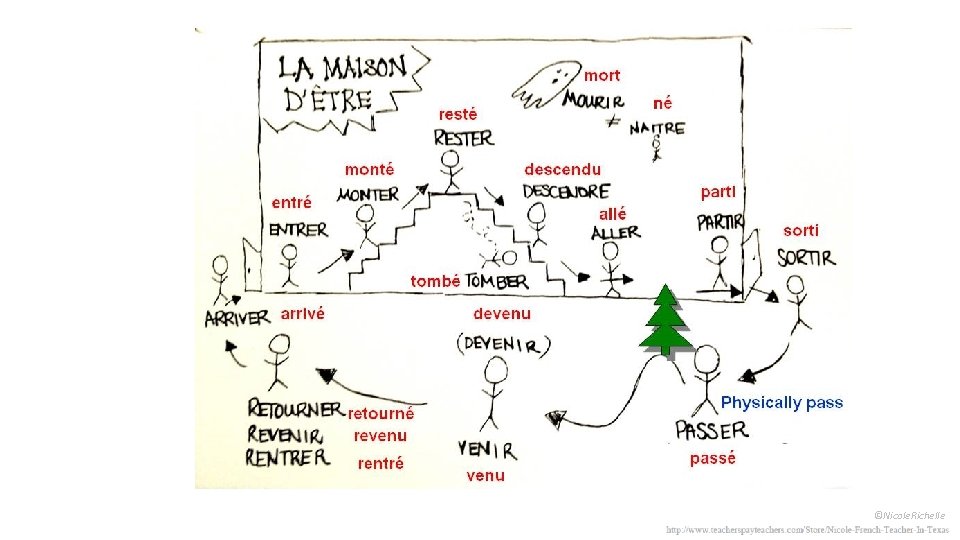 LA MAISON
D'ÊTRE
mort
MOURIR
≠
né
NAITRE
resté
RESTER
monté
MONTER
descendu
DESCENDRE
entré
ENTRER
allé
ALLER
parti
PARTIR
sorti
SORTIR
tombé TOMBER
ARRIVER arrivé
devenu
(DEVENIR)
RETOURNER retourné
REVENIR revenu
RENTRER rentré
VENIR
venu
Physically pass
PASSER
passé
©Nicole.Richelle
http://www.teacherspayteachers.com/Store/Nicole-French-Teacher-In-Texas